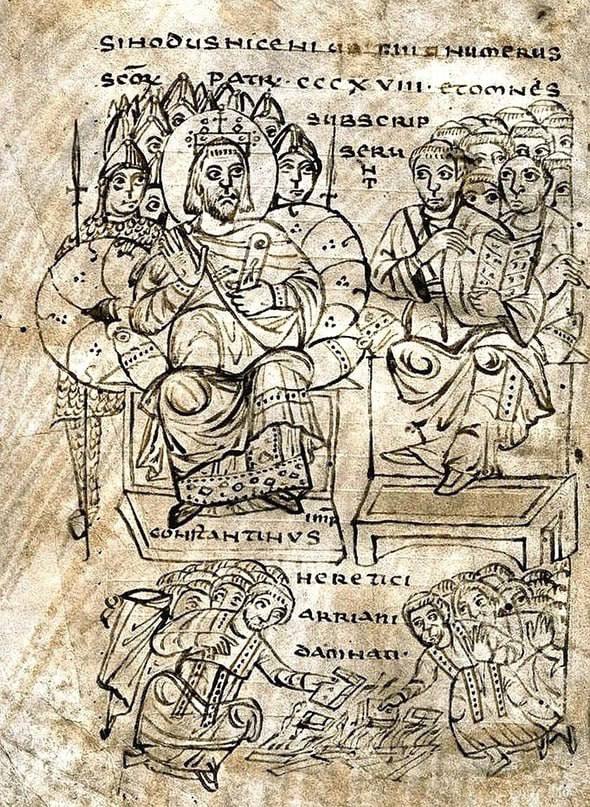 SINODUS NICENI NUMERUS
SCŌR PATRŪ · CCCXVIII · ET OMNES
SUBSCRIP
SERU
NT
IMP
CONSTANTINUS
HERETICI
ARRIANI
DAMNATI ·